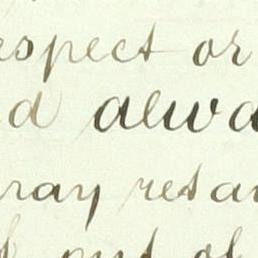 espect or
d alwa
ray retai
out of